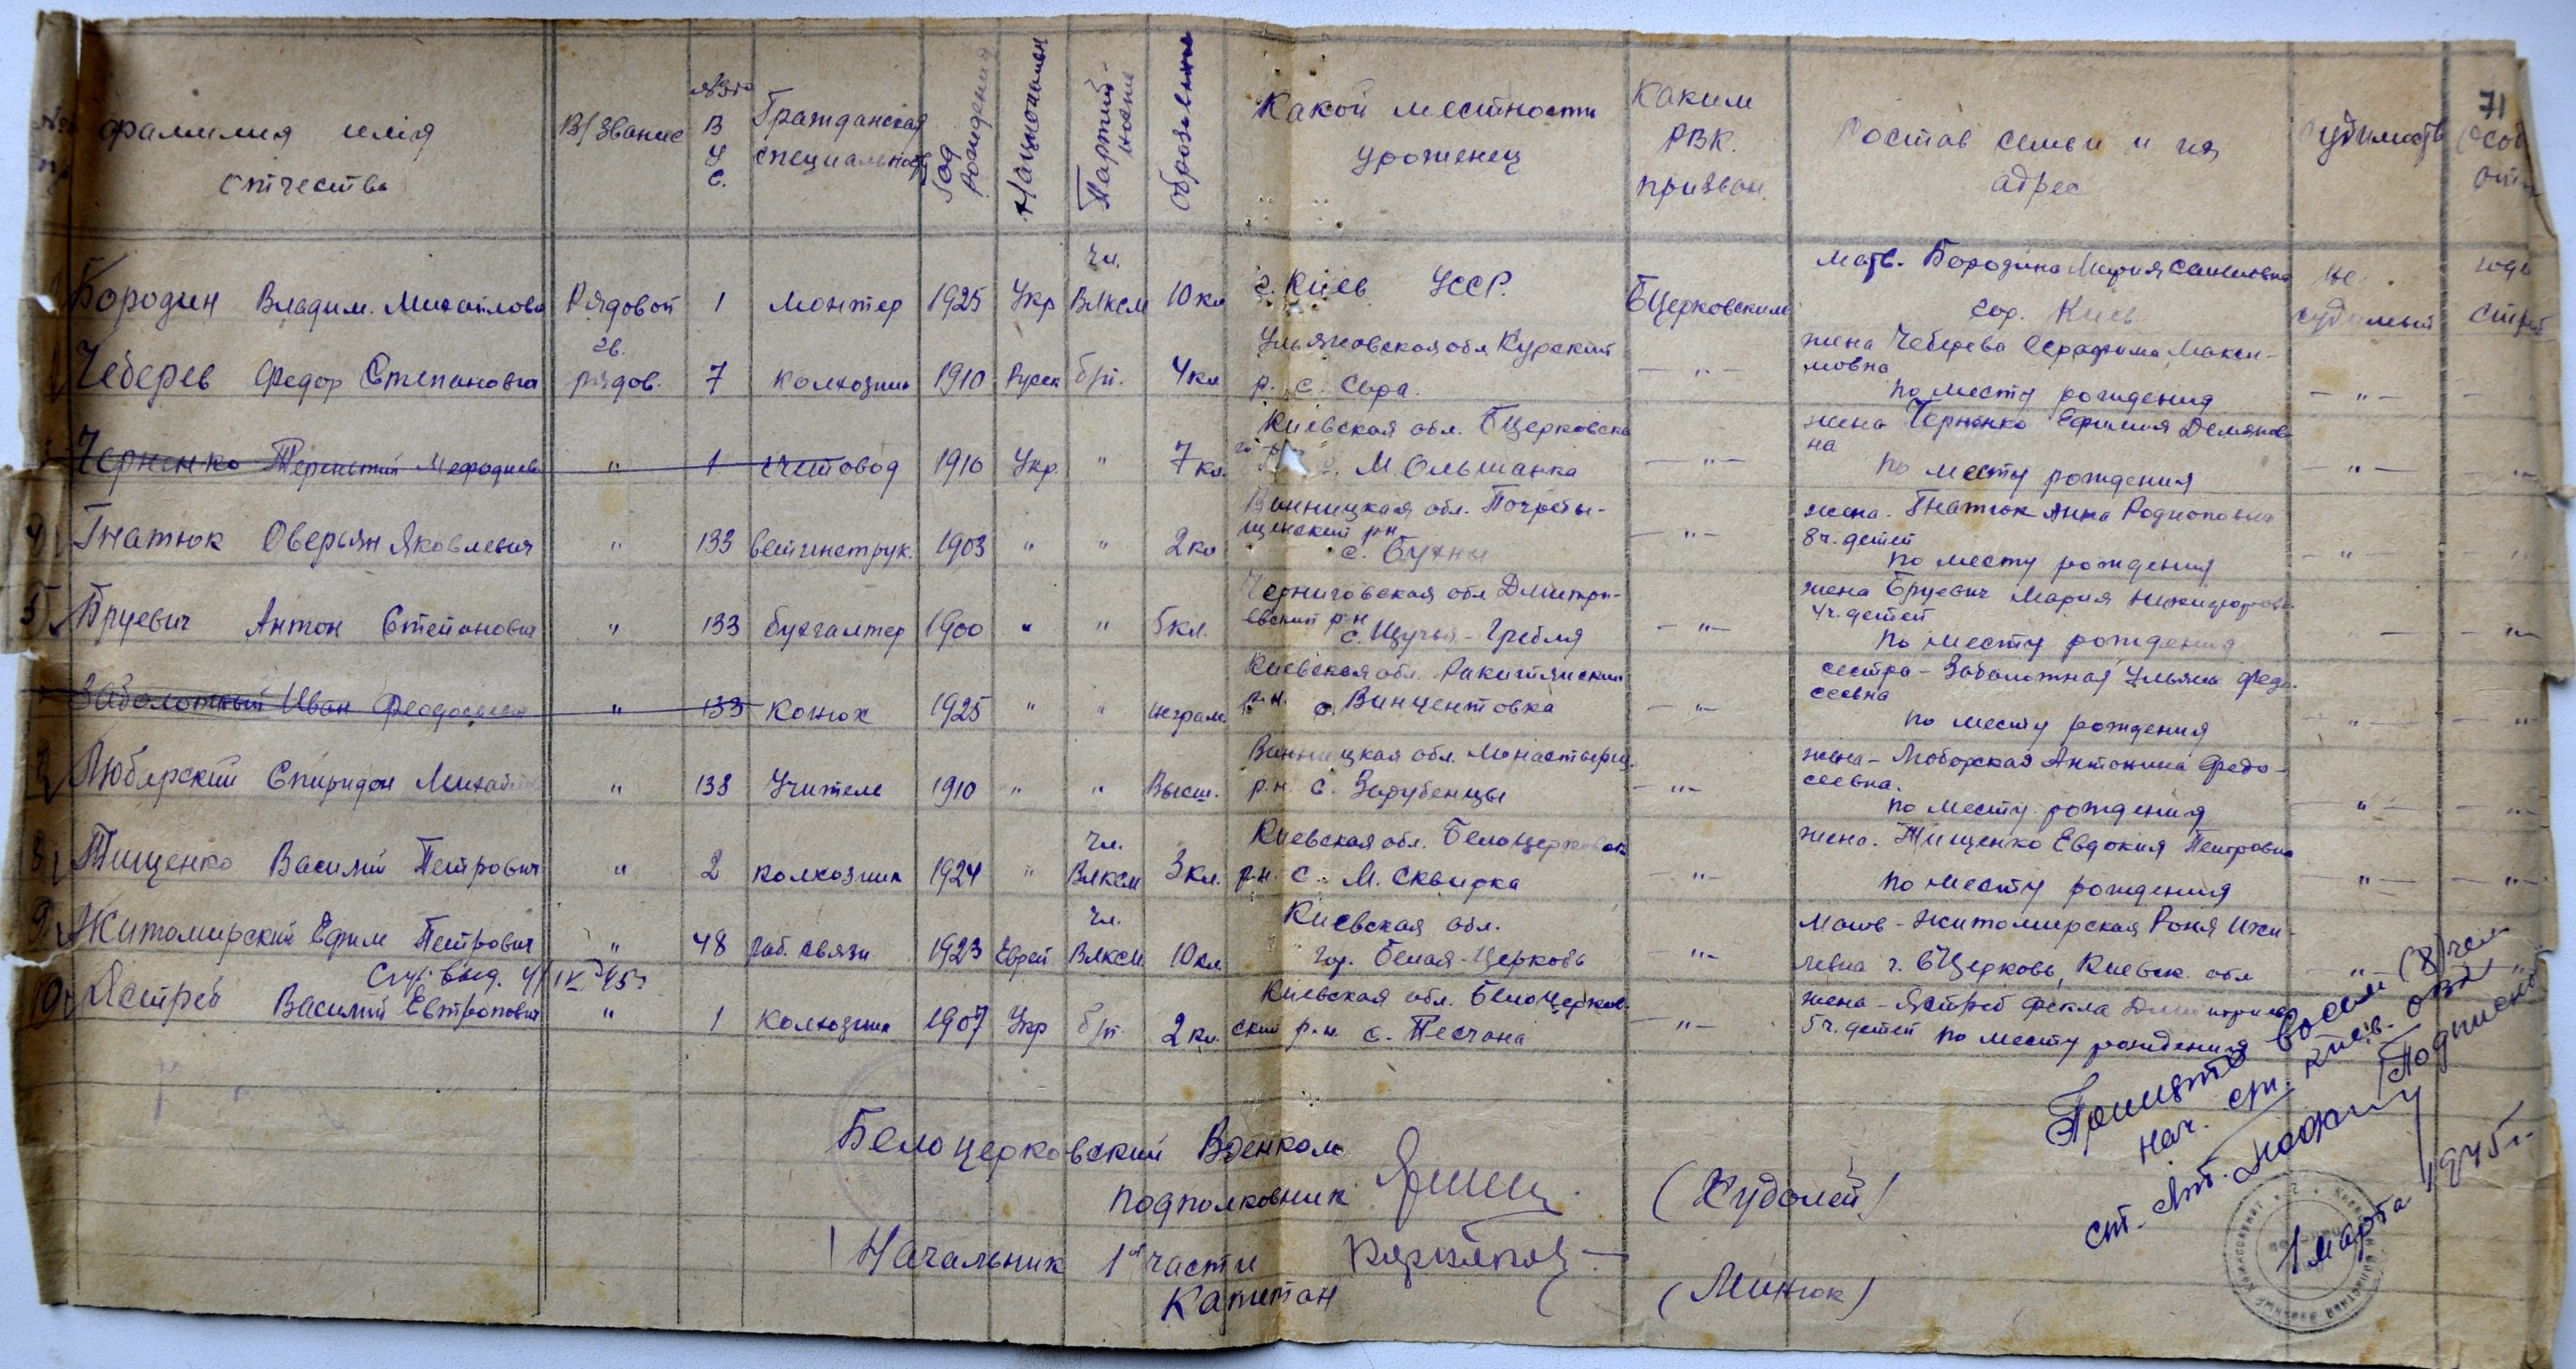 71
фамилия имя отчества
В/звание
№ ВУС
Гражданская специальность
Год рождения
Национальн
Партийность
Образование
Какой местности уроженец
Каким РВК призван
Состав семьи и их адрес
Судимость
Бородин Владим. Михайлович Рядовой 1 монтер 1925 Укр чл. ВЛКСМ 10 кл г. Киев УССР. БЦерковским мать. Бородина Мария
гор. Киев не судимый
Чеберев Федор Степанович гв. рядов. 7 колхозник 1910 Русск б/п. 4 кл Ульяновская обл. Курский
р. с. Сара. — " — жена Чеберева Серафима Максимовна
по месту рождения — " —
Черненко Терентий Мефодиев " 1 счетовод 1910 Укр. " 7 кл. Киевская обл. БЦерковско
М. Ольшанка — " — жена Черненко Ефимия Демяновна
по месту рождения — " —
4 Гнатюк Оверьян Яковлевич " 133 ветинструк. 1903 " " 2 кл Винницкая обл. Погребыщенский рн
с. Бухны — " — жена. Гнатюк Анна Родионовна
8 ч. детей
по месту рождения — " —
5 Бруевич Антон Степанович " 133 бухгалтер 1900 " " 5 кл. Черниговская обл Дмитриевский р-н
с. Щучья-Гребля — " — жена Бруевич Мария
4 ч. детей
по месту рождения — " —
Заболотный Иван Феодосьевич " 133 Конюх 1925 " " неграм. Киевская обл. Ракитянский
р.н. с. Винцентовка — " — сестра - Заболотная Ульяна Федосеевна
по месту рождения — " —
7 Любарский Спиридон Михайл " 133 Учитель 1910 " " Высш. Винницкая обл. Монастырищ.
р.н. с. Зарубенцы — " — жена - Любарская Антонина Федосеевна.
по месту рождения — " —
8 Тищенко Василий Петрович " 2 колхозник 1924 " чл. ВЛКСМ 3 кл. Киевская обл. Белоцерковск
р.н. с. М. Сквирка — " — жена. Тищенко Евдокия Петровна
по месту рождения — " —
9 Житомирский Ефим Петрович " 48 раб. связи 1923 Еврей чл. ВЛКСМ 10 кл. Киевская обл.
гор. Белая-Церковь — " — мать - Житомирская Роня
г. БЦерковь, Киевск. обл — " —
10 Ястреб Василий Евтропович " 1 Колхозник 1907 Укр б/п. 2 кл. Киевская обл. Белоцерковский р.н. с. Песчана — " — жена - Ястреб Фекла
5 ч. детей по месту рождения
Белоцерковский Военком
подполковник (Худолей)
Начальник 1й части
Капитан (Минюк)
Принято восемь (8) чел
нач.
ст. лт.
/Подписень/
1 марта 1945 г.